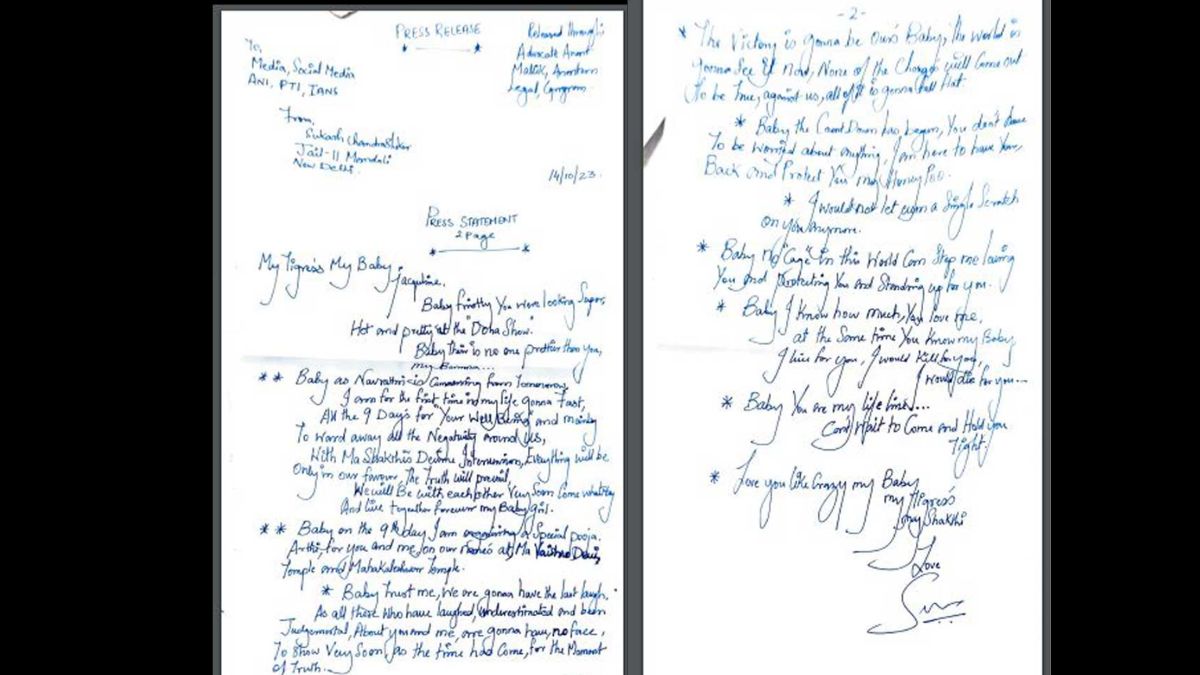 PRESS RELEASE
Released through:
Advocate Anant
Mallik, Anantam
Legal, Gurgram.
To,
Media, Social Media
ANI, PTI, IANS
From,
Sukash Chandrashekar
Jail-11 Mandoli
New Delhi.
14/10/23.
PRESS STATEMENT
2 Page
My Tigress My Baby Jacqueline.
Baby firstly You were looking Super,
Hot and pretty at the "Doha Show".
Baby their is no one prettier than you,
my
** Baby as Navrathri is Commencing from Tomorrow,
I am for the first time in my life gonna Fast,
All the 9 Day's for "Your Well Being" and mainly
To ward away all the Negativity around us,
With Ma Shakthis Devine Intervension, Everything will be
Only in our favour, The Truth will prevail,
We will Be with each other Very Soon Come whatsay
And live together forever my Baby girl.
** Baby on the 9th day I am organising a Special pooja.
Arthi, for you and me, on our at, Ma Vaishno Devi,
Temple and Mahakaleshwar Temple.
* Baby trust me, We are gonna have the last laugh.
As all those who have laughed, underestimated and been
Judgemental, About you and me, are gonna have, no face,
To show Very Soon, as the time has Come, for the Moment
of Truth.
- 2 -
* The Victory is gonna be our's Baby, the World is
gonna See it now, None of the Charges will Come out
To be true, against us, all of it is gonna fall flat.
* Baby the Count Down has begun, You don't have
To be worried about anything, I am here to have Your
Back and Protect You my Honey Poo.
* I would not let even a Single Scratch
on you anymore.
* Baby no "Cage" in this World Can Stop me loving
You and protecting You and Standing up for you.
* Baby I know how much, You love me,
at the Same time You know my Baby
I live for you, I would Kill for you,
I would die for you...
* Baby You are my life line....
Can't wait to Come and Hold you
Tight.
* Love you like Crazy my Baby
my Tigress
my Shakthi
Love